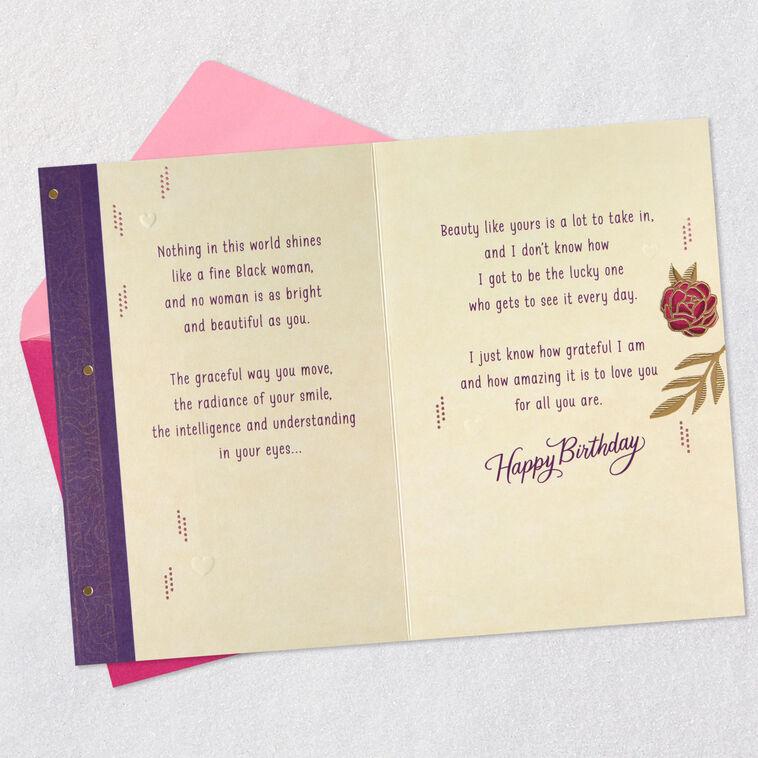 Nothing in this world shines
like a fine Black woman,
and no woman is as bright
and beautiful as you.
The graceful way you move,
the radiance of your smile,
the intelligence and understanding
in your eyes...
Beauty like yours is a lot to take in,
and I don't know how
I got to be the lucky one
who gets to see it every day.
I just know how grateful I am
and how amazing it is to love you
for all you are.
Happy Birthday